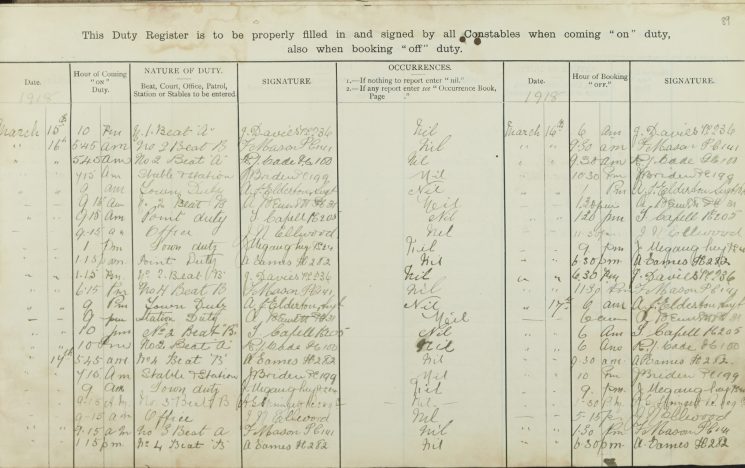 89
This Duty Register is to be properly filled in and signed by all Constables when coming "on" duty,
also when booking "off" duty.
Date. Hour of Coming "ON" Duty. NATURE OF DUTY. Beat, Court, Office, Patrol, Station or Stables to be entered. SIGNATURE. OCCURRENCES. 1.—If nothing to report enter "nil." 2.—If any report enter see "Occurrence Book, Page ." Date. Hour of Booking "OFF." SIGNATURE.
1918 1918
March 15th 10 Pm 1 Beat "A" J. Davies Pc 236 Nil March 16th 6 am J. Davies Pc 236
" 16th 5.45 am No 2 Beat B J. Mason Pc 141 Nil " " 9.30 am J. Mason Pc 141
" " 5.45 am No 2 Beat A R.J. Cade Pc 100 Nil " " 9.30 am R.J. Cade Pc 100
" " 7.15 am Stable & Station J. Briden Pc 199 Nil " " 10.30 Pm J. Briden Pc 199
" " 9 am Town Duty A. J. Elderton Sergt Nil " " Pm A. J. Elderton Sergt
" " 9.15 am No 2 Beat B Nil " " 1.30 pm
" " 9.15 am Point duty J. Capell Pc 205 Nil " " 1.20 pm J. Capell Pc 205
" " 9.15 am Office J. N. Ellwood Nil " " J. N. Ellwood
" " 1 pm Town duty J. Megaughey Nil " " 9 pm J. Megaughey
" " 1.15 pm Point Duty A. Eames Pc 282 Nil " " 6.30 pm A. Eames Pc 282
" " 1.15 Pm No 2 Beat "B" J. Davies Pc 236 Nil " " 6.30 Pm J. Davies Pc 236
" " 6.15 Pm No 4 Beat B J. Mason Pc 141 Nil " " Pm J. Mason Pc 141
" " 9 Pm Town Duty A. J. Elderton Sergt Nil " 17th 6 am A. J. Elderton Sergt
" " 9 pm Station Duty Nil " " 6 am
" " 10 pm No 2 Beat B J. Capell Pc 205 Nil " " 6 Am J. Capell Pc 205
" " 10 Pm No 2 Beat A R.J. Cade Pc 100 Nil " " 6 Am R.J. Cade Pc 100
" 17th 5.45 am No 4 Beat "B" A Eames Pc 282 Nil " " 9.30 am A Eames Pc 282
" " 7.15 Am Stable & Station J Briden Pc 199 Nil " " 10 Pm J Briden Pc 199
" " 9 am Town duty J Megaughey Nil " " 9 Pm J Megaughey
" " 9.15 No 3 Beat B Nil " " 1.30 pm
" " 9.15 am Office J. N. Ellwood Nil " " 5.15 p J. N. Ellwood
" " 9.15 am Beat A J. Mason Pc 141 Nil " " 1.30 Pm J. Mason Pc 141
" " 1.15 pm No 4 Beat "B" A Eames Pc 282 Nil " " 6.30 pm A. Eames Pc 282